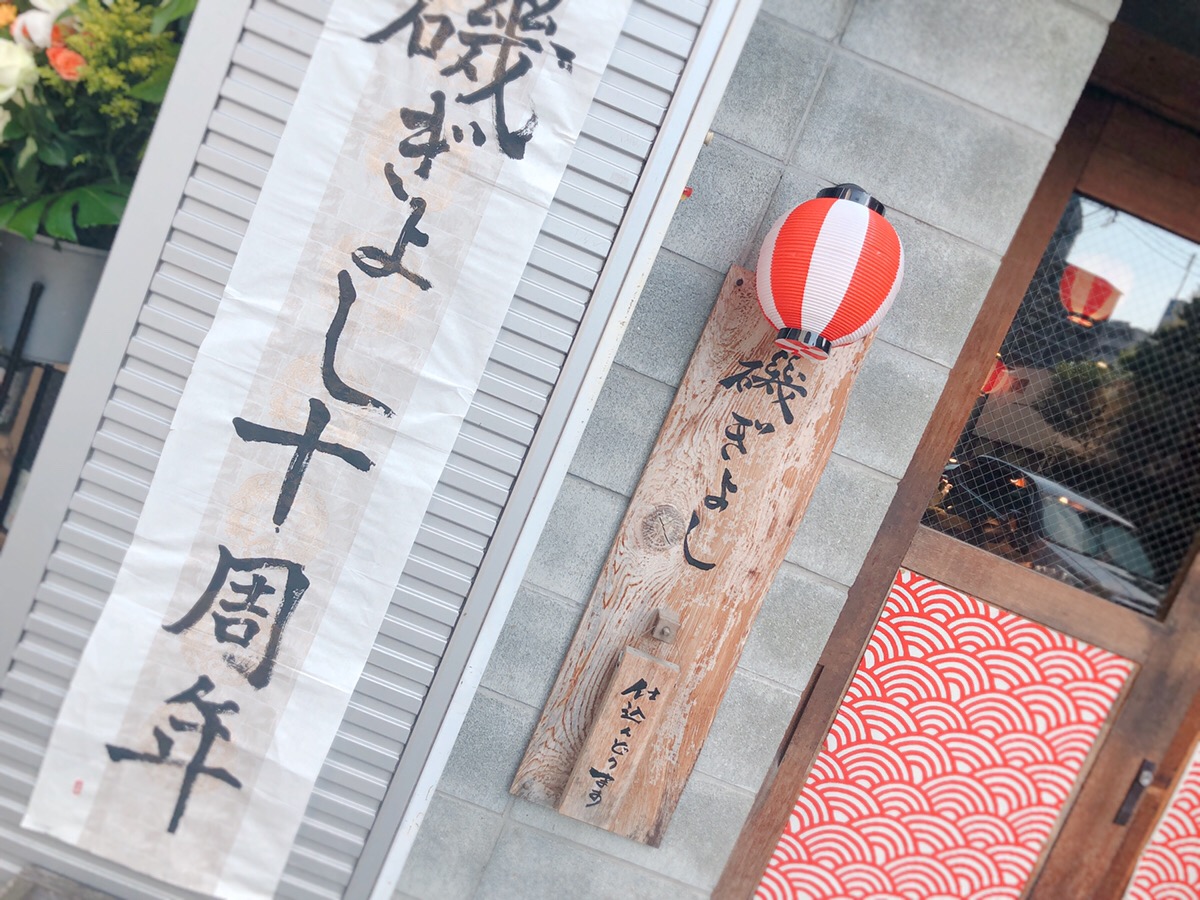 磯ぎよし十周年
磯ぎよし
仕込みどります